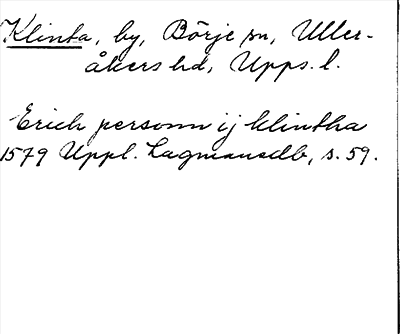 Klinta, by, Börje sn, Uller-
åkers hd, Upps. l.
Erich personn ij klintha
1579 Uppl. Lagmansdb, s. 59.